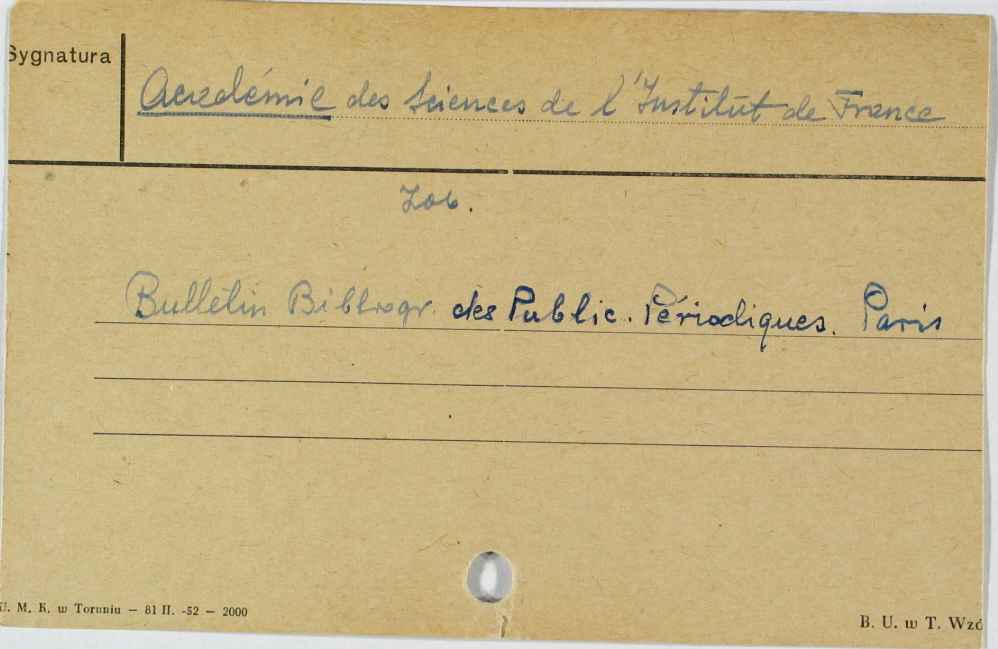 Sygnatura
Académie des Sciences de l'Institut de France
Zob.
Bulletin Bibliogr. des Public. Périodiques. Paris
U. M. K. w Toruniu — 81 II. -52 — 2000
B. U. w T. Wzó